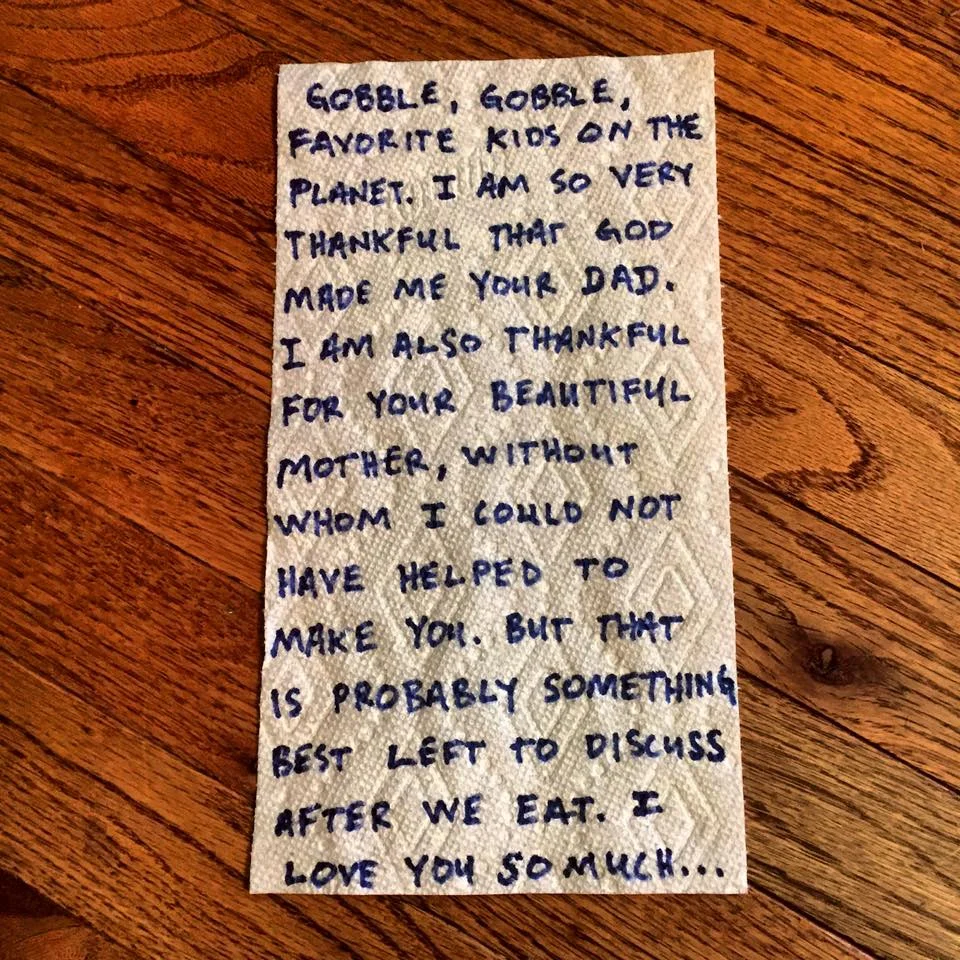 GOBBLE, GOBBLE,
FAVORITE KIDS ON THE
PLANET. I AM SO VERY
THANKFUL THAT GOD
MADE ME YOUR DAD.
I AM ALSO THANKFUL
FOR YOUR BEAUTIFUL
MOTHER, WITHOUT
WHOM I COULD NOT
HAVE HELPED TO
MAKE YOU. BUT THAT
IS PROBABLY SOMETHING
BEST LEFT TO DISCUSS
AFTER WE EAT. I
LOVE YOU SO MUCH...